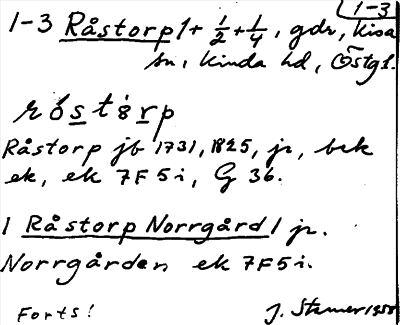 1-3
1-3 Råstorp 1+ 1/2 + 1/4, gdr, Kisa
sn, Kinda hd, Östgl.
róstòrp
Råstorp jb 1731, 1825, jr, bek
ek, ek 7F5i, G 36.
1 Råstorp Norrgård 1 jr.
Norrgården ek 7F5i.
Forts! J. Stamer 1955